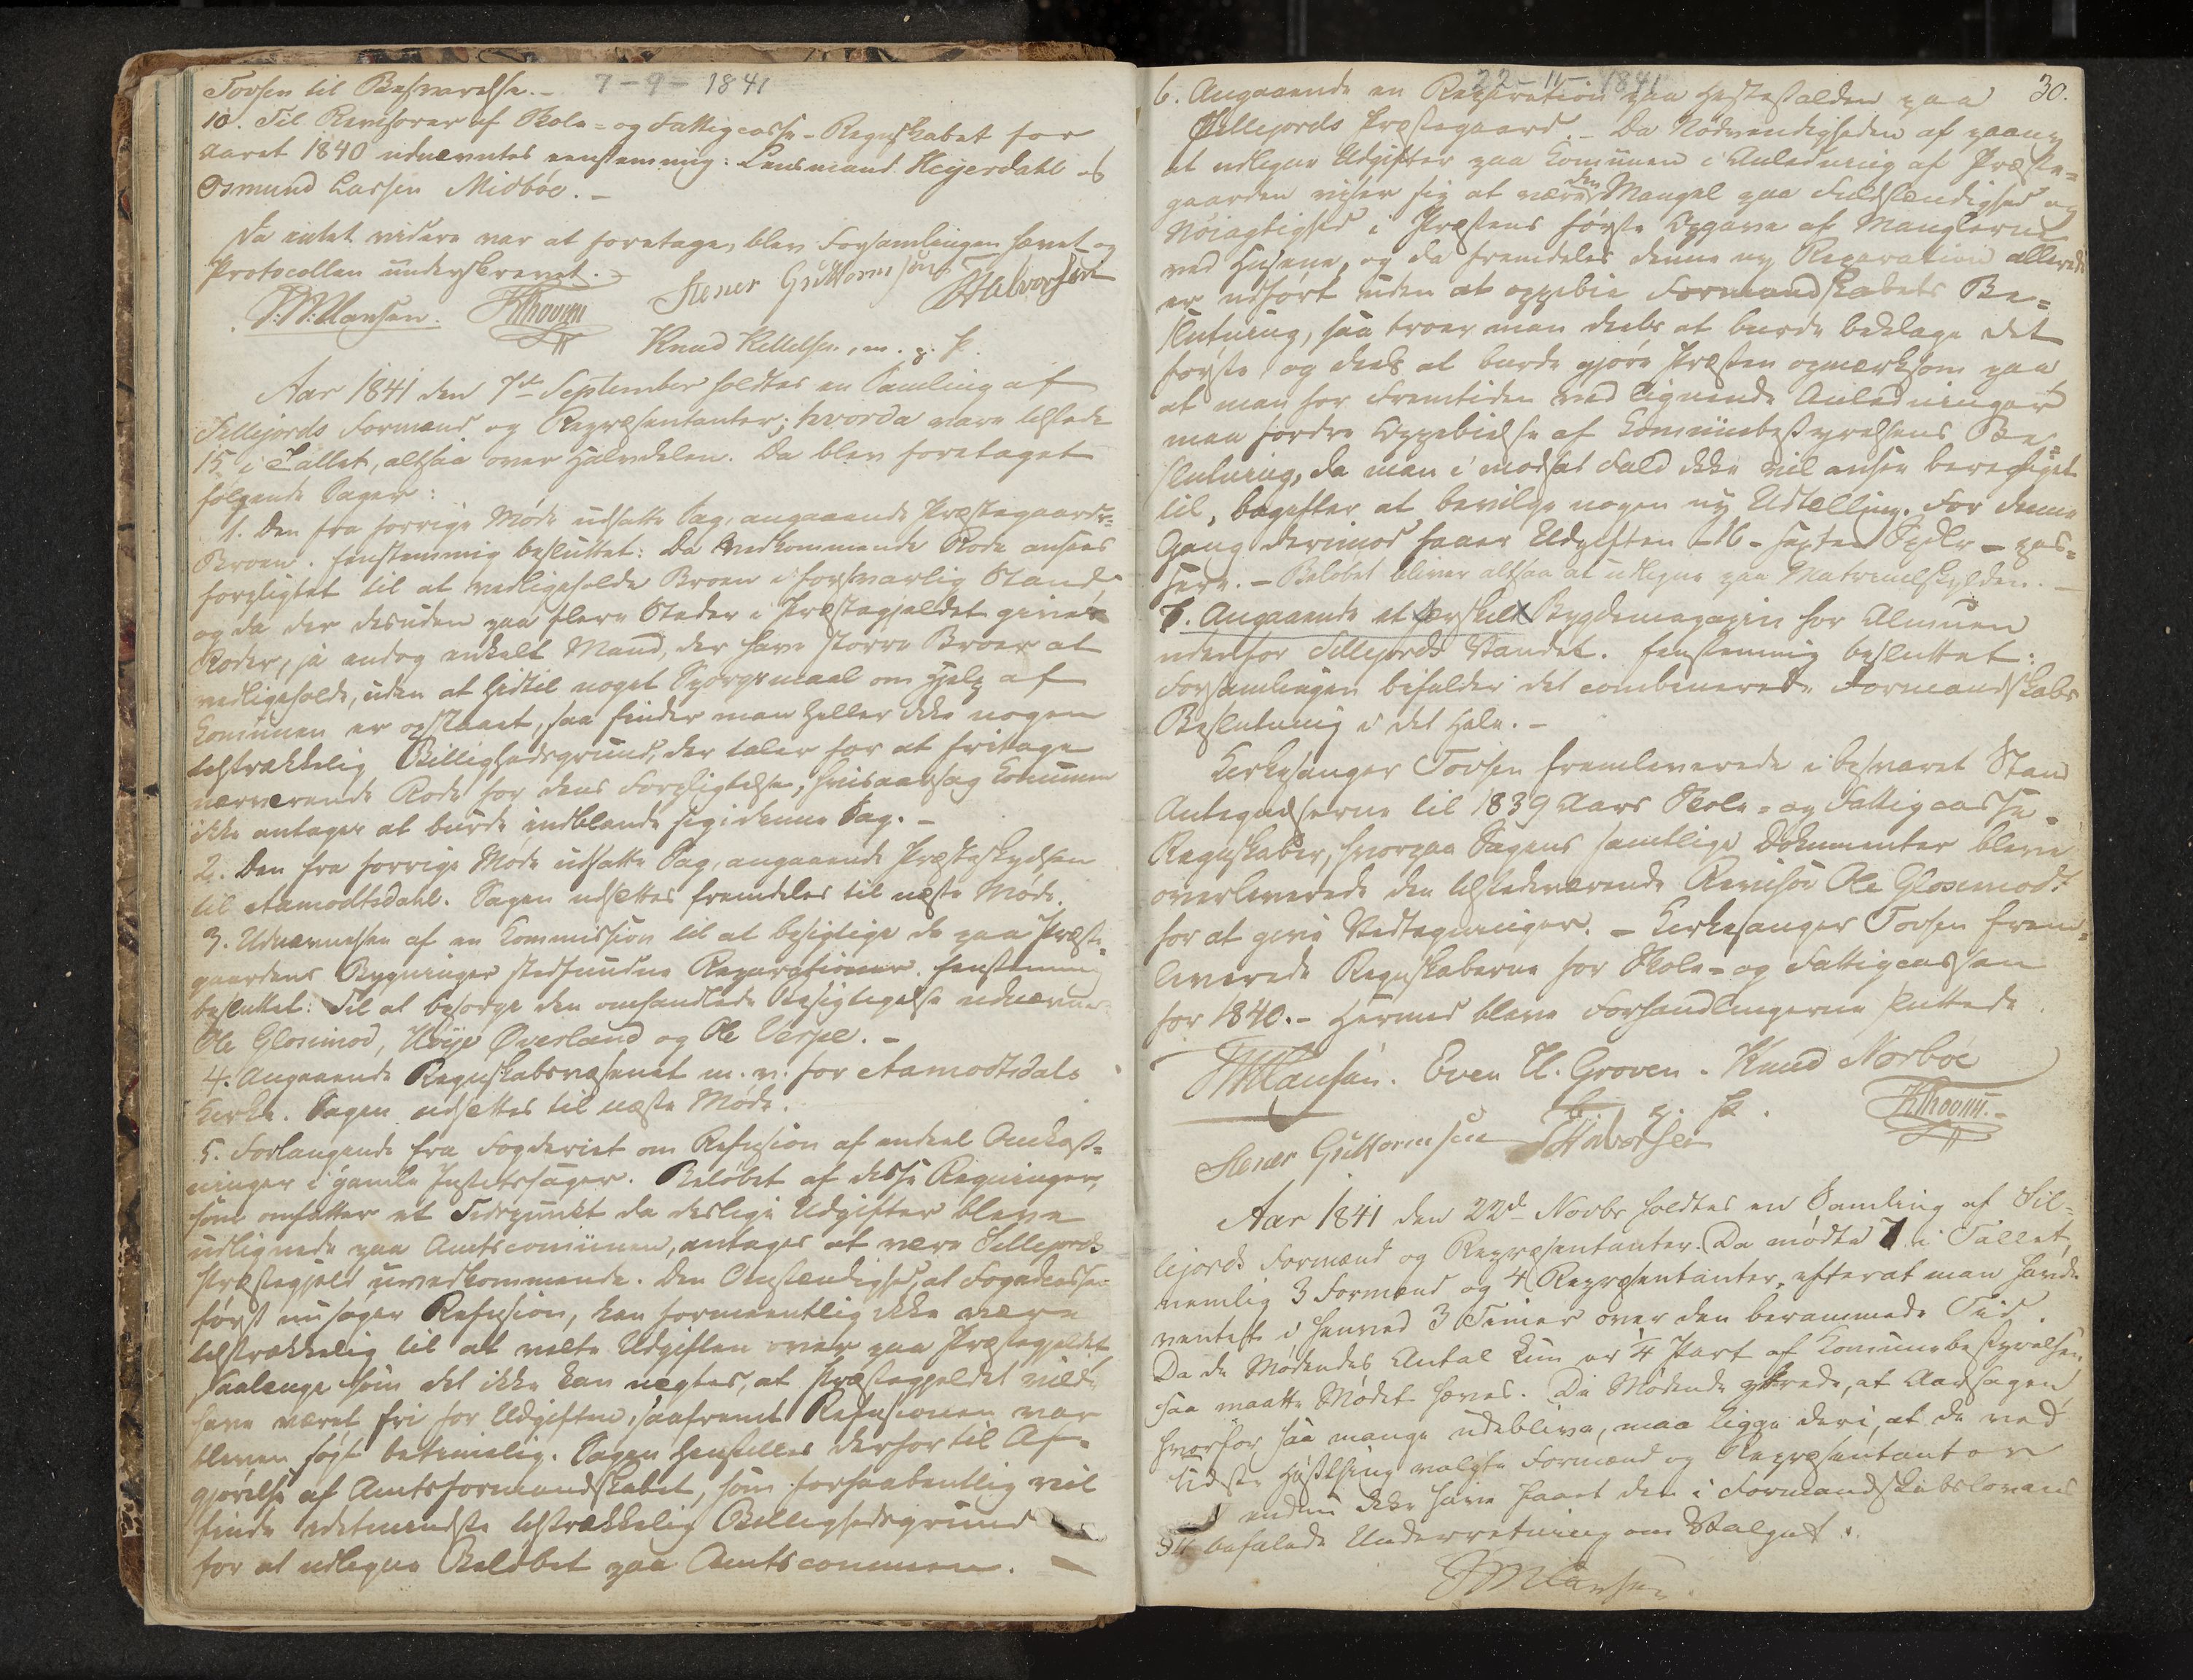 Tovsen til Besvarelse. – 7-9-1841
10. Til Revisorer af Skole- og Fattigcasse-Regnskabet for
Aaret 1840 udnævntes eenstemmig: Lensmand Heyerdahl og
Osmund Larsen Midbøe. –
Da intet videre var at foretage, blev Forsamlingen hævet og
Protocollen underskrevet. –
Stener Guttormsøn Halvorsen
Knud Kittelsen, m. p. P.
Aar 1841 den 7de September holdtes en Samling af
Sillejords Formænd og Repræsentanter; hvorda vare tilstede
15 i Tallet, altsaa over Halvdelen. Da blev foretaget
følgende Sager:
1. Den fra forrige Møde udsatte Sag, angaaende Præstegaards-
Broen. Eenstemmig besluttet: Da vedkommende Rode ansees
forpligtet til at vedligeholde Broen i forsvarlig Stand,
og da der desuden paa flere Steder i Præstegjeldet gives
Roder, ja endog enkelt Mand, der have større Broer at
vedligeholde, uden at hidtil noget Spørgsmaal om Hjelp af
Communen er opstaaet, saa finder man heller ikke nogen
tilstrækkelig Billighedsgrund, der taler for at fritage
nærværende Rode for dens Forpligtelse, hvisaarsag Communen
ikke antager at burde indblande sig i denne Sag. –
2. Den fra forrige Møde udsatte Sag, angaaende Præsteskydsen
til Aamodtsdahl. Sagen udsættes fremdeles til næste Møde.
3. Udnævnelsen af en Commission til at besigtige de paa Præste-
gaardens Bygninger stedfundne Reparationer. Eenstemmig
besluttet: Til at besørge den omhandlede Besigtigelse udnævnes
Ole Glosimod, Høye Øverland og Ole Verpe. –
4. Angaaende Regnskabsvæsenet m. v. for Aamodtsdals
Kirke. Sagen udsættes til næste Møde.
5. Forlangende fra Fogderiet om Refusion af endeel Omkost-
ninger i gamle Justitssager. Beløbet af disse Regninger,
som omfatter et Tidspunkt da deslige Udgifter bleve
udlignede paa Amtscommunen, antages at være Sillejords
Præstegjeld uvedkommende. Den Omstændighed, at Fogedcassen
først nu søger Refusion, kan formeentlig ikke være
tilstrækkelig til at vælte Udgiften over paa Præstegjeldet
saalænge som det ikke kan negtes, at Præstegjeldet vilde
have været fri for Udgiften, saafremt Refusionen var
bleven søgt betimelig. Sagen henstilles derfor til Af-
gjørelse af Amtsformandskabet, som forhaabentlig vil
finde idetmindste tilstrækkelig Billighedsgrund
for at udlegne Beløbet paa Amtscommunen. –
22-11-1841
30.
6. Angaaende en Reparation paa Hestestalden paa
Sillejords Præstegaard. – Da Nødvendigheden af paany
at udligne Udgifter paa Communen i Anledning af Præste-
gaarden viser sig at være den Mangel paa Fuldstændighed og
Nøiagtighed i Præstens første Opgave af Manglerne
ved Husene, og da fremdeles denne ny Reparation allerede
er udført uden at oppebie Formandskabets Be-
slutning, saa troer man deels at burde beklage det
første og deels at burde gjøre Præsten opmærksom paa,
at man for Fremtiden ved lignende Anledninger
maa fordre Oppebielse af Communebestyrelsens Be-
slutning, da man i modsat Fald ikke vil ansee berettiget
til, bagefter at bevilge nogen ny Udtælling. For denne
Gang derimod faaer Udgiften – 16 – sexten Spdlr – pas-
sere. – Beløbet bliver altsaa at udligne paa Matriculskylden. –
7. Angaaende et særskilt Bygdemagazin for Almuen
udenfor Sillejords Vandet. Eenstemmig besluttet:
Forsamlingen bifalder det combinerede Formandskabs
Beslutning i det Hele. –
Kirkesanger Tovsen fremleverede i besvaret Stand
Antegnelserne til 1839 Aars Skole- og Fattigcasse-
Regnskaber, hvorpaa Sagens samtlige Dokumenter bleve
overleverede den tilstedeværende Revisor Ole Glosimodt
for at give Vedtegninger. – Kirkesanger Tovsen frem-
leverede Regnskaberne for Skole- og Fattigcassen
for 1840. – Hermed bleve Forhandlingerne sluttede.
Even H. Groven. Knud Norbøe
p. P.
Stener Guttormsen Halvorsen
Aar 1841 den 22d Novbr holdtes en Samling af Sil-
lejords Formænd og Repræsentanter. Da mødte 7 i Tallet,
nemlig 3 Formænd og 4 Repræsentanter, efterat man havde
ventet i henved 3 Timer over den berammede Tid.
Da de Mødendes Antal kun er ¼ Part af Communebestyrelsen,
saa maatte Mødet hæves. De Mødende yttrede, at Aarsagen
hvorfor saa mange udebleve, maa ligge deri, at de ved
sidste Høstthing valgte Formænd og Repræsentanter
endnu ikke have faaet den i Formandskabslovens
befalede Underretning om Valget.